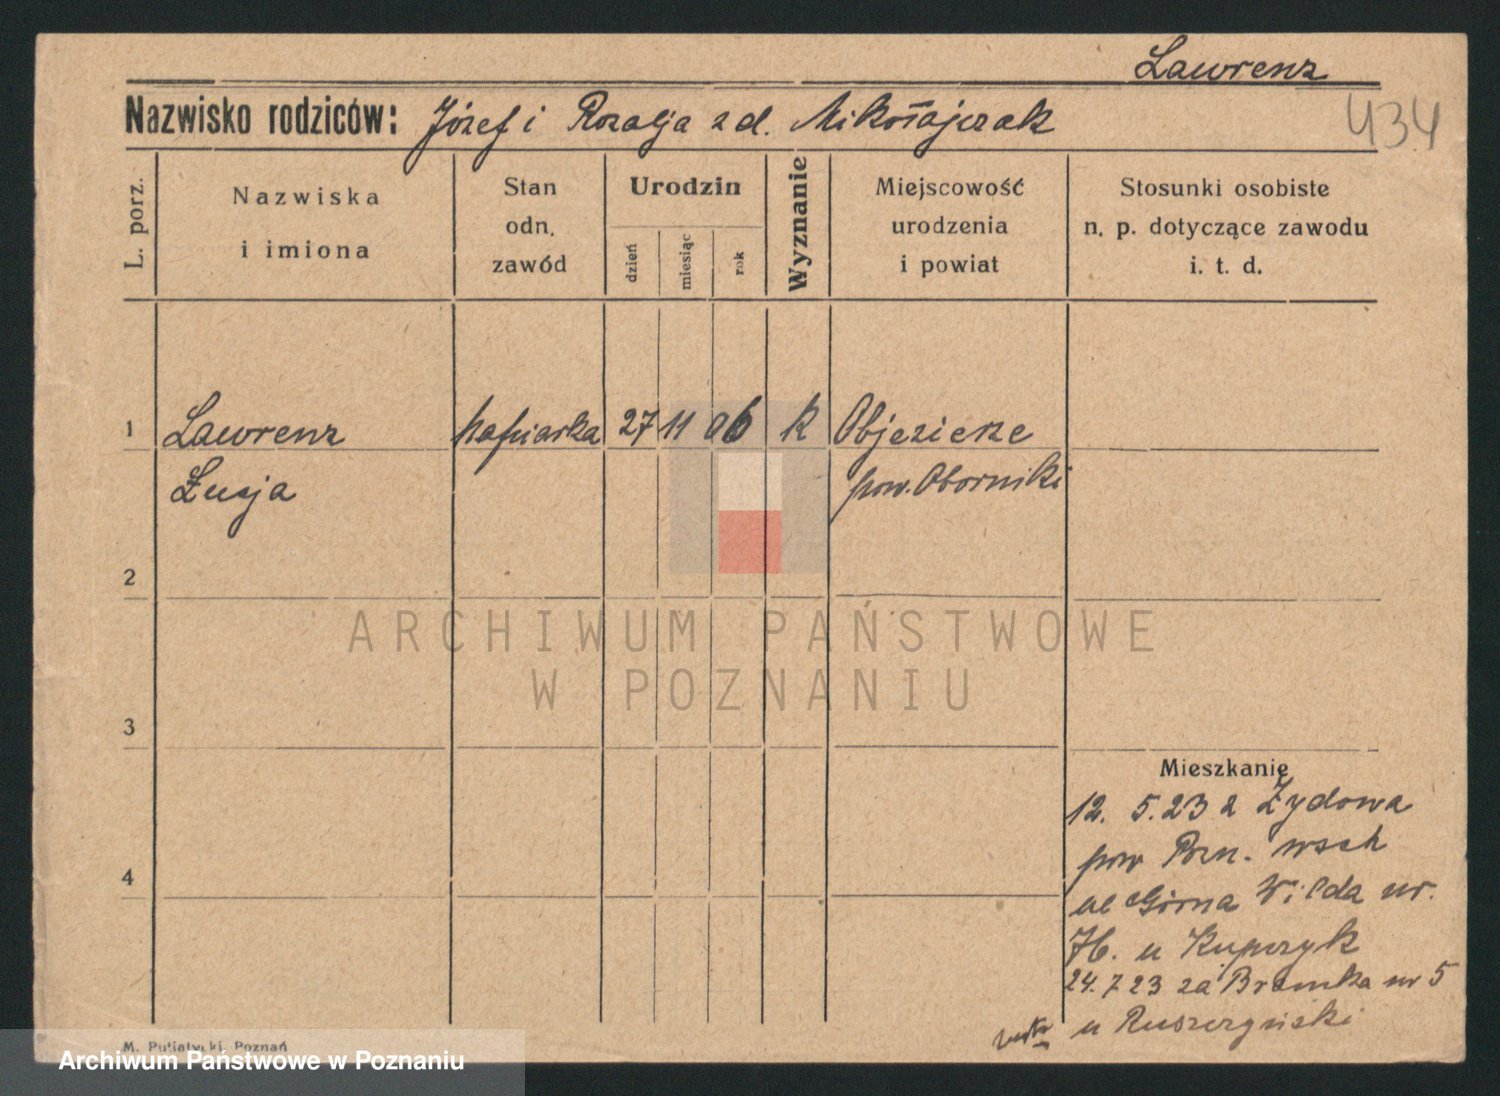 Lawrenz
Nazwisko rodziców: Józef i Rozalja z d. Mikołajczak
434
L. porz.
Nazwiska
i imiona
Stan
odn.
zawód
Urodzin
dzień
miesiąc
rok
Wyznanie
Miejscowość
urodzenia
i powiat
Stosunki osobiste
n. p. dotyczące zawodu
i. t. d.
1 Lawrenz hafciarka 27 11 06 k Objezierze
Łucja pow. Oborniki
2
ARCHIWUM PAŃSTWOWE
W POZNANIU
3
Mieszkanie
12. 5. 23 z Żydowa
pow Pozn. wsch
4
ul Górna Wilda nr.
76. u Kupczyk
24. 7 23 za Bramka nr 5
u Ruszczyński
M. Putiatycki, Poznań
Archiwum Państwowe w Poznaniu